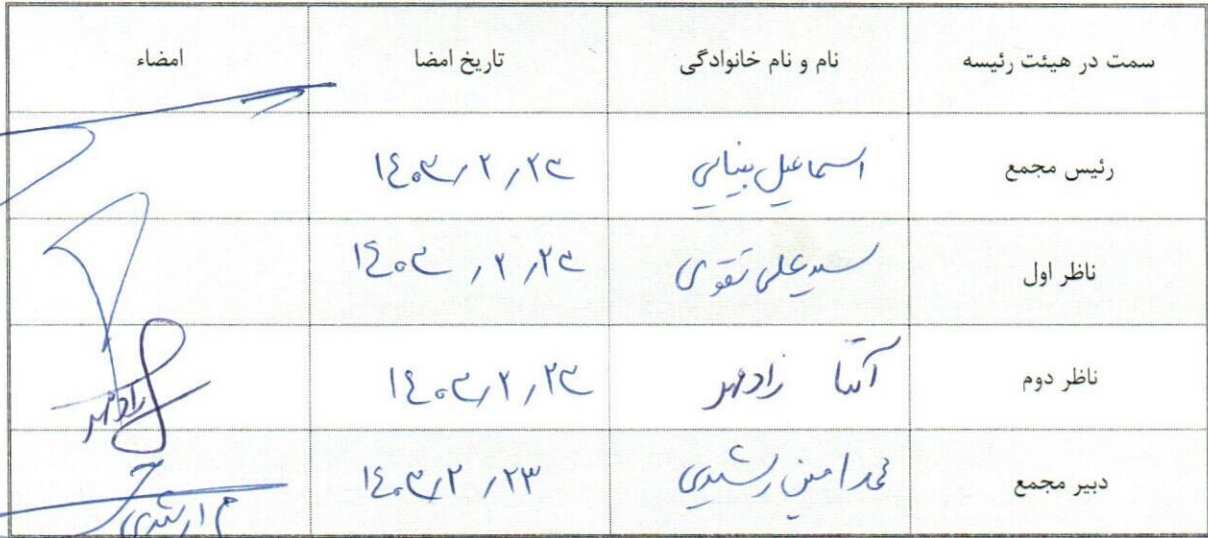 سمت در هیئت رئیسه نام و نام خانوادگی تاریخ امضا امضاء
رئیس مجمع اسماعیل بینایی ۱۴۰۳/۲/۲۳
ناظر اول سیدعلی تقوی ۱۴۰۳/۲/۲۳
ناظر دوم آتنا رادمهر ۱۴۰۳/۲/۲۳ رادمهر
دبیر مجمع محمد امین رشیدی ۱۴۰۳/۲/۲۳